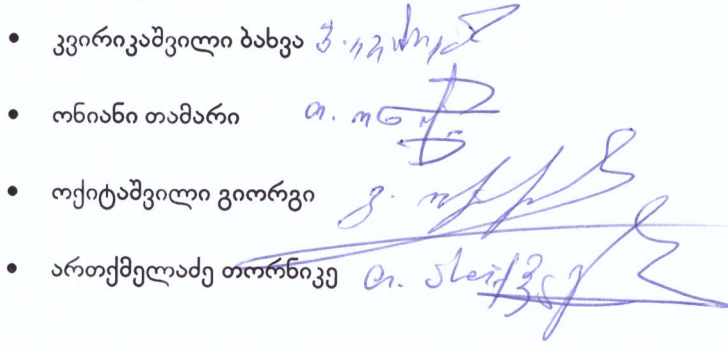 • კვირიკაშვილი ბახვა
• ონიანი თამარი თ. ონ
• ოქიტაშვილი გიორგი გ.
• ართქმელაძე თორნიკე თ.